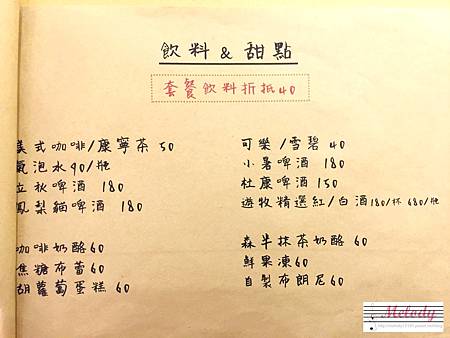 飲料 & 甜點
套餐飲料折抵40
美式咖啡/康寧茶 50
氣泡水90/瓶
立秋啤酒 180
鳳梨貓啤酒 180
可樂/雪碧 40
小暑啤酒 180
杜康啤酒 150
遊牧精選紅/白酒180/杯 680/瓶
咖啡奶酪60
焦糖布蕾60
胡蘿蔔蛋糕 60
森半抹茶奶酪 60
鮮果凍60
自製布朗尼60
Melody